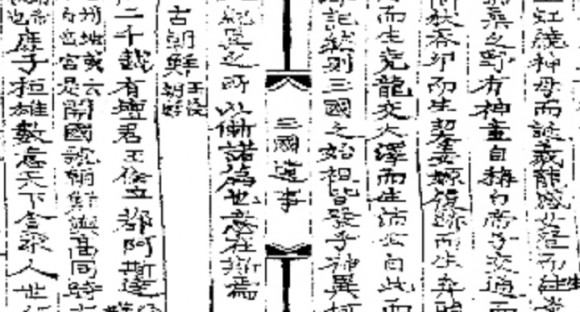 虹繞神母而誕羲龍感女登而生
桑之野有神童自稱白帝子交通而
狄吞卵而生契姜嫄履跡而生弃
而生堯龍交大澤而生沛公自此而
記然則三國之始祖皆發乎神異何
三國遺事
紀異之所以慚諸篇也意在斯焉
古朝鮮 王儉朝鮮
二千載有壇君王儉立都阿斯達
州地或云
宮是開國號朝鮮與高同時
庶子桓雄數意天下貪求人世